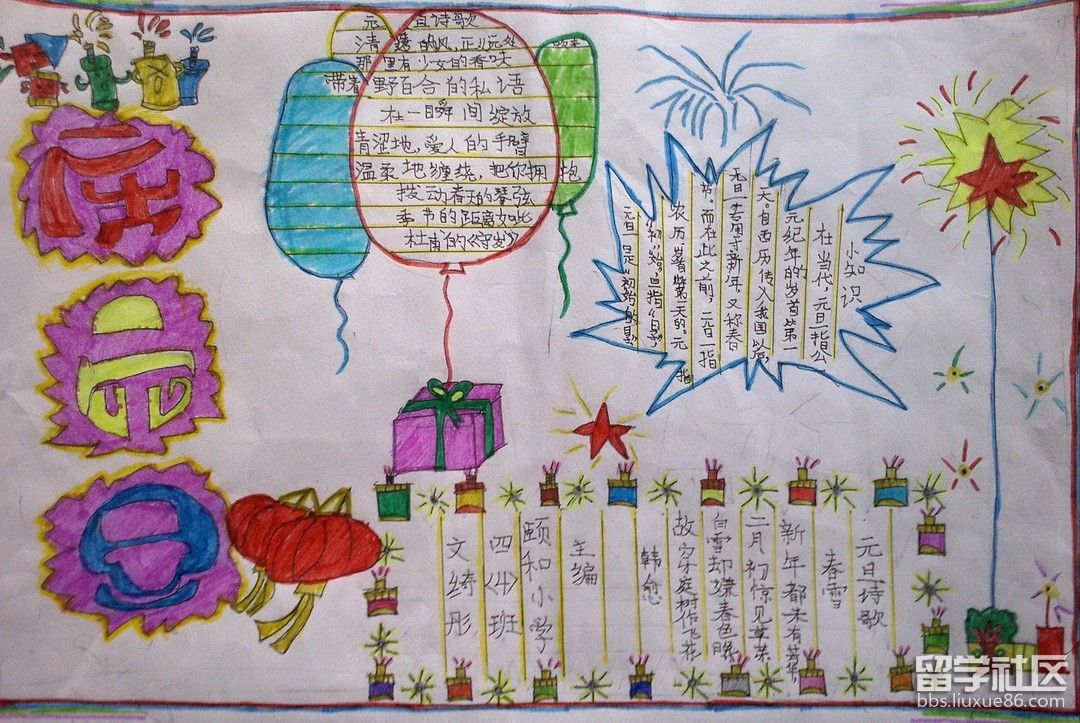 庆
元
旦
元旦诗歌
清透的风，正从远处
那里有少女的香味
带着野百合的私语
在一瞬间绽放
青涩地，爱人的手臂
温柔地缠绕，把你拥抱
拨动春天的琴弦
季节的距离如此
杜甫的《守岁》
小知识
在当代，元旦一指公
元纪年的岁首第一
天。自西历传入我国以后，
元旦一专用于新年，又称春
节。而在此之前，元旦一指
农历岁首第一天的。元
"初""始"，旦指"日"，
元旦一是"初始的日"
元旦诗歌
春雪
新年都未有芳华，
二月初惊见草芽
白雪却嫌春色晚
故穿庭树作飞花
韩愈
主编
颐和小学
四〈4〉班
文绮彤
留学社区
bbs.liuxue86.com